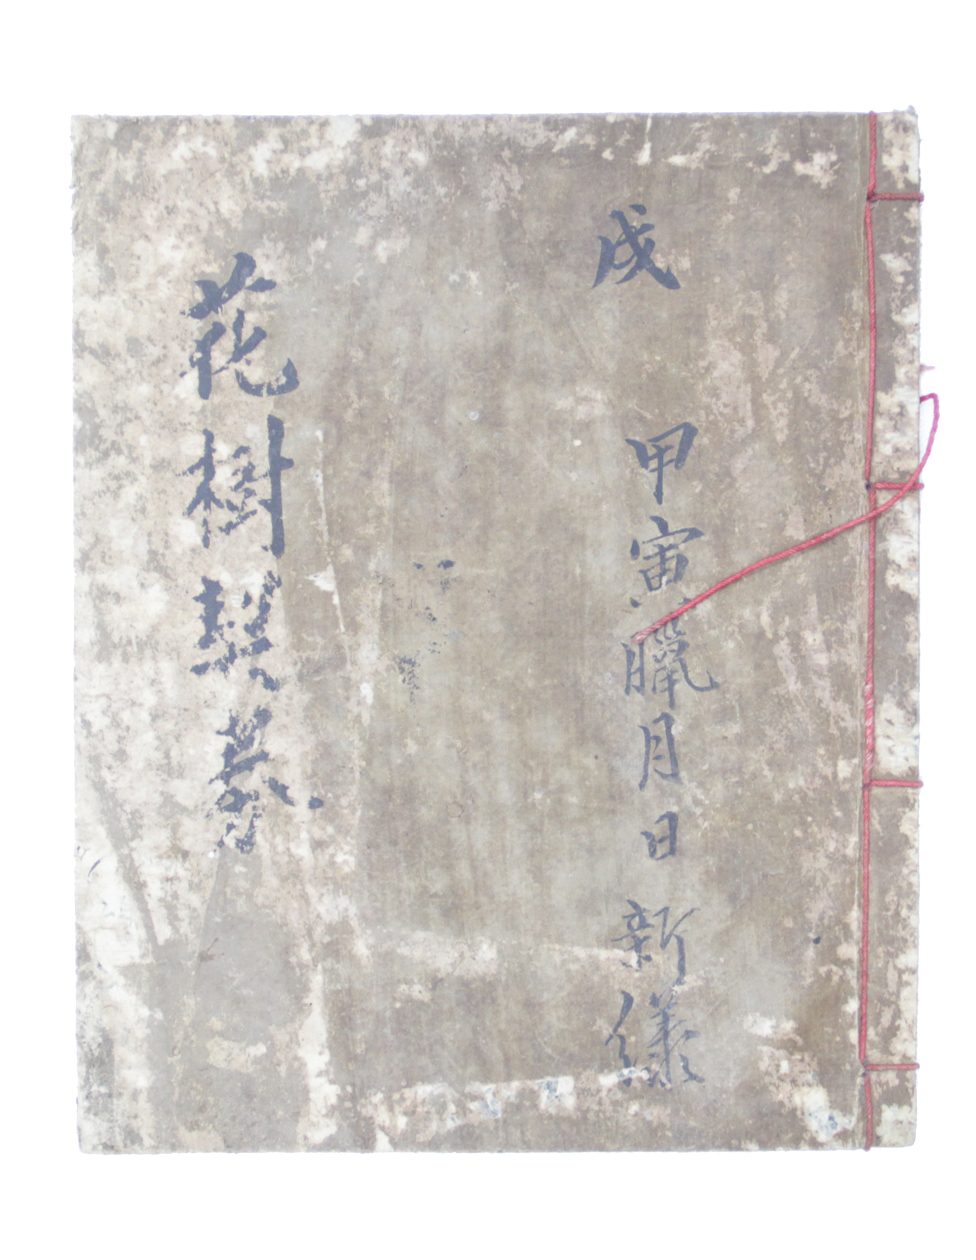 甲寅臘月日 新儀
花樹契案